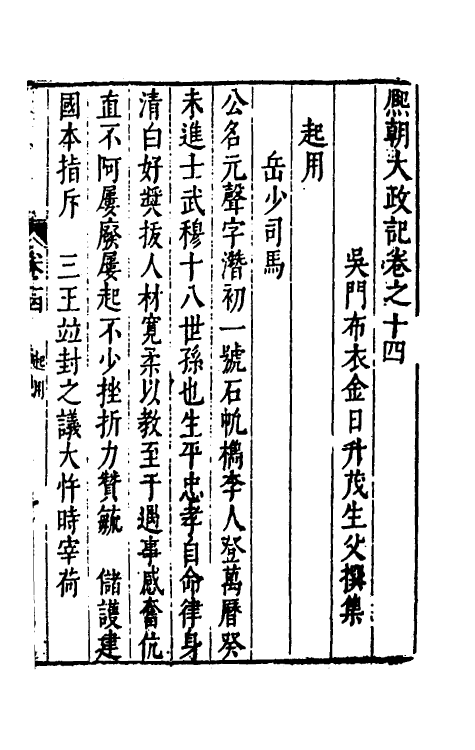 熈朝大政記卷之十四
吳門布衣金日升茂生父撰集
起用
岳少司馬
公名元聲字潛初一號石帆檇李人登萬曆癸
未進士武穆十八世孫也生平忠孝自命律身
清白好奬拔人材寬柔以教至于遇事感奮伉
直不阿屢廢屢起不少挫折力贊毓　儲護建
國本指斥　三王竝封之議大忤時宰荷
起用